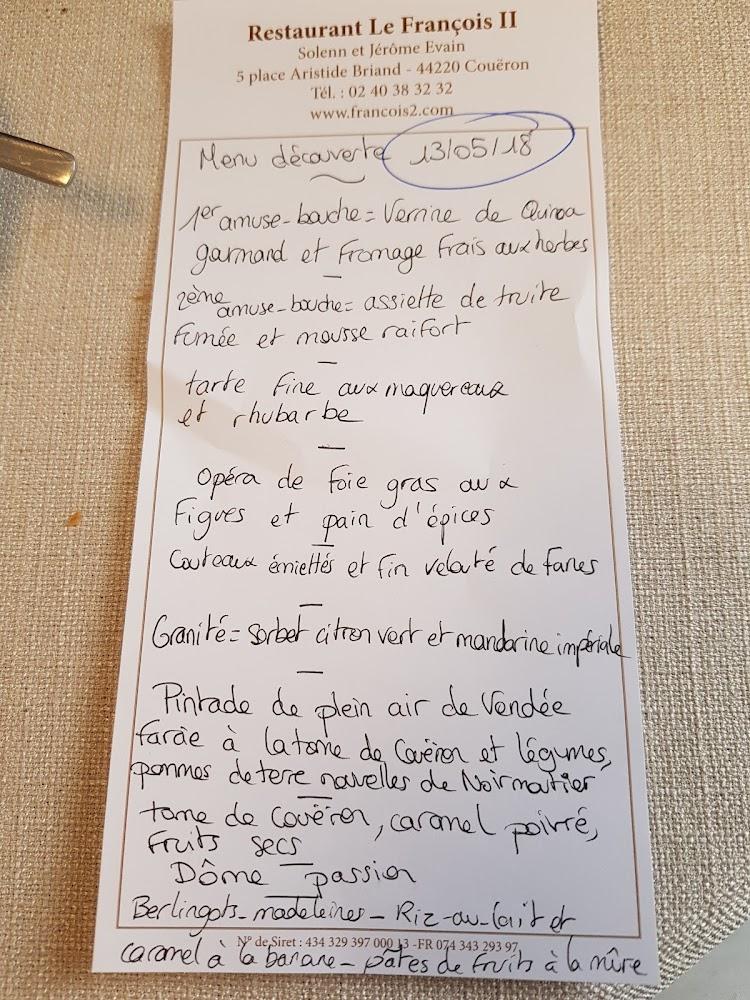 Restaurant Le François II
Solenn et Jérôme Evain
5 place Aristide Briand - 44220 Couëron
Tél. : 02 40 38 32 32
www.francois2.com
Menu découverte 13/05/18
1er amuse-bouche = Verrine de Quinoa
gourmand et Fromage Frais aux herbes
2ème amuse-bouche = assiette de truite
Fumée et mousse raifort
tarte Fine aux maquereaux
et rhubarbe
Opéra de Foie gras aux
Figues et pain d'épices
Couteaux émiettés et Fin velouté de fanes
Granité = sorbet citron vert et mandarine impériale
Pintade de plein air de Vendée
farcie à la tome de Couëron et légumes,
pommes de terre nouvelles de Noirmoutier
tome de Couëron, caramel poivré,
Fruits secs
Dôme passion
Berlingots - madeleines - Riz-au-lait et
N° de Siret : 434 329 397 000 13 - FR 074 343 293 97
caramel à la banane - pâtes de Fruits à la mûre